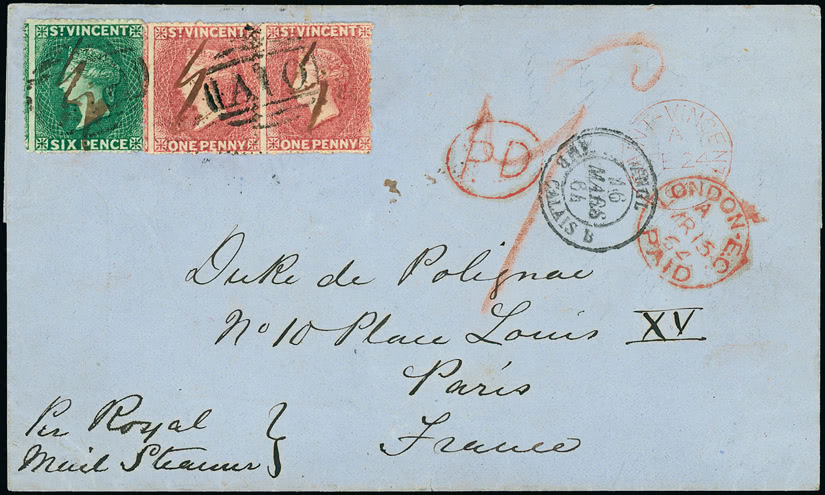 ST VINCENT ST VINCENT ST VINCENT
SIX PENCE ONE PENNY ONE PENNY
A10
P.D.
ANGL. AMB. CALAIS B
16
MARS
64
ST VINCENT
A
24
LONDON-E.C
A
MR 15
64
PAID
Duke de Polignac
No 10 Place Louis XV
Paris
France
Per Royal
Mail Steamer